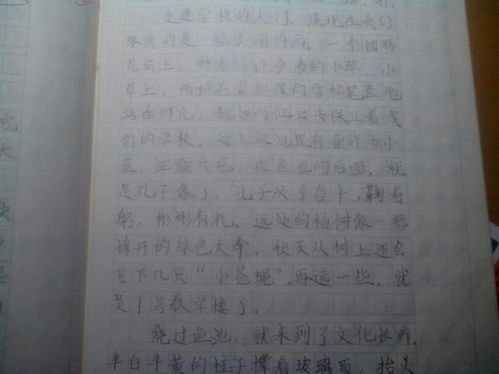 走进学校的大门，展现在我们
眼前的是一幅美丽的画。一个圆形
花坛上，种着许许多多的小草，小
草上，两棵挺拔的雪松笔直地
站在那儿，保卫着我
们的学校。鱼池里有着许多小
鱼，五颜六色，在鱼池的后面，就
是孔子像了，孔子双手合十，鞠着
躬，彬彬有礼。远处的杨树像一把
撑开的绿色大伞，秋天从树上还会
飞下几只“小苍蝇”。再远一些，就
是1号教学楼了。
绕过鱼池，就来到了文化长廊，
半白半黄的柱子撑着玻璃顶，抬头
它
大